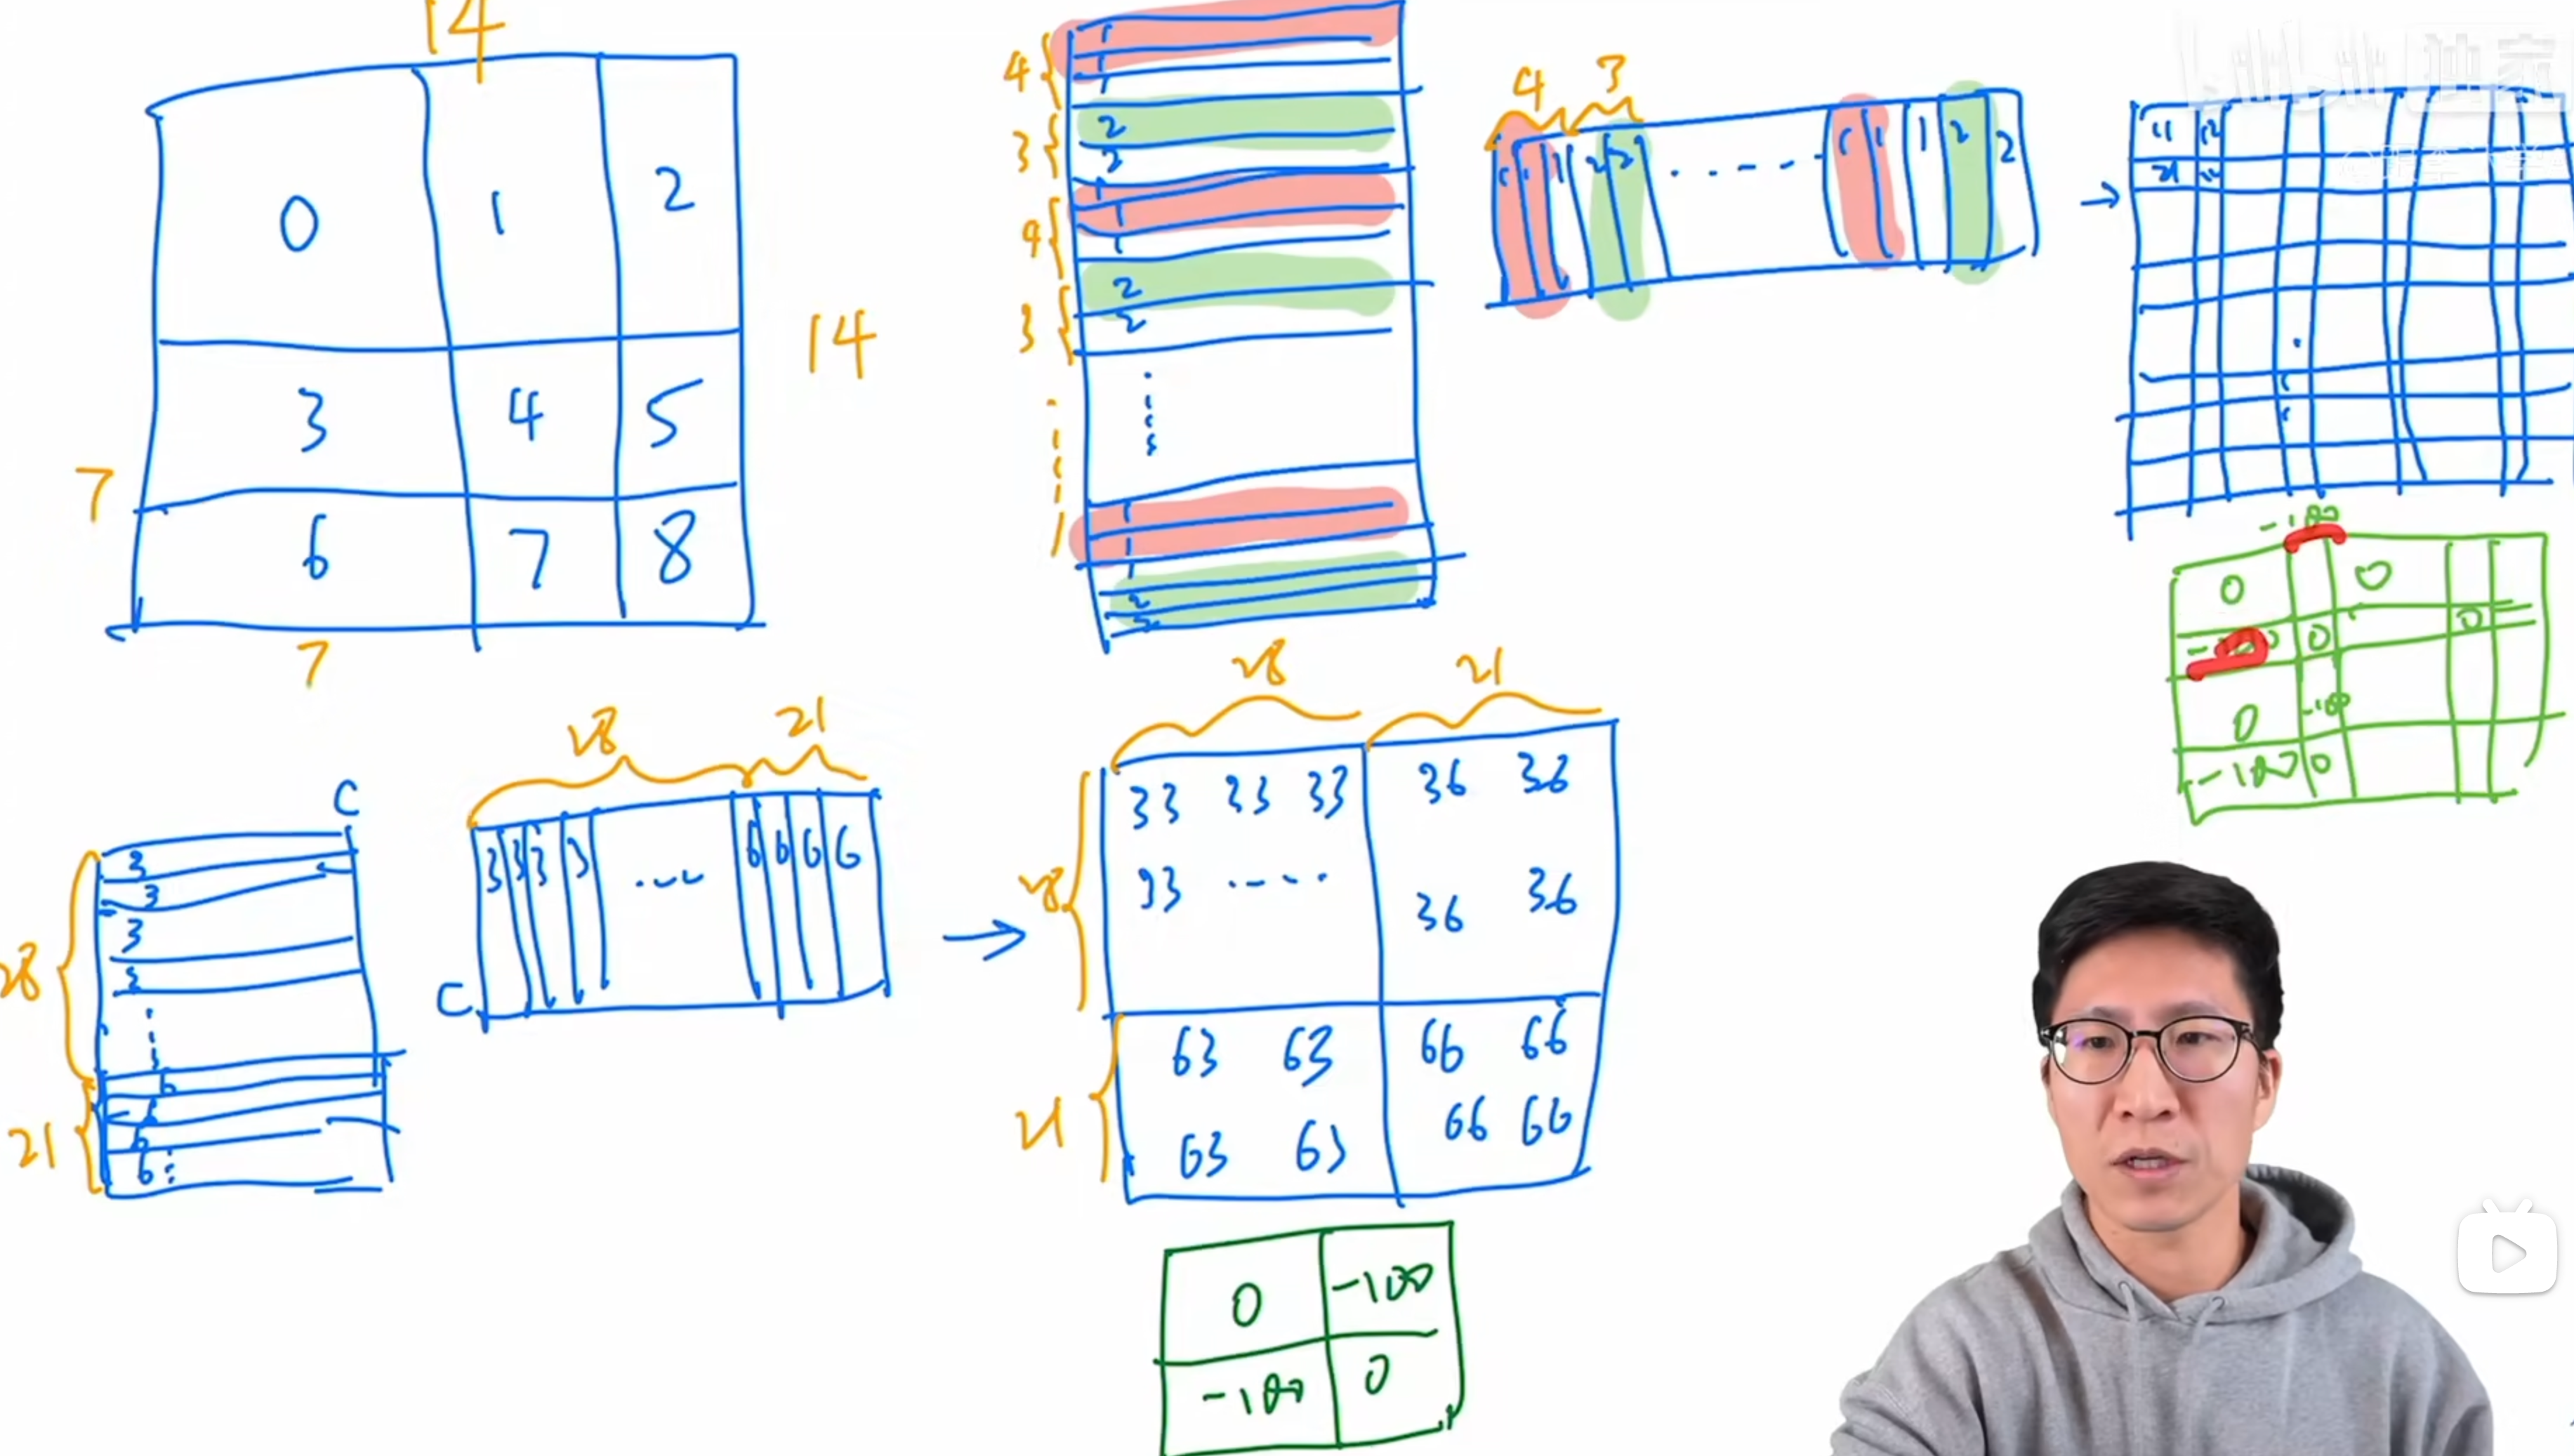 14
0 1 2
3 4 5
6 7 8
14
7
7
4
1
1
1
3
2
2
4
1
1
1
3
2
2
1
1
1
2
2
4 3
1 1 1 2 2 ..... 1 1 1 2 2
→
11 12
21
-100
0 0
-100 0 0
0 -100
-100 0
C
28
3
3
3
21
6
6
6
6
28 21
3 3 3 3 .... 6 6 6 6
C
→
28 21
28
33 33 33 36 36
33 .... 36 36
21
63 63 66 66
63 63 66 66
0 -100
-100 0
bilibili 独家